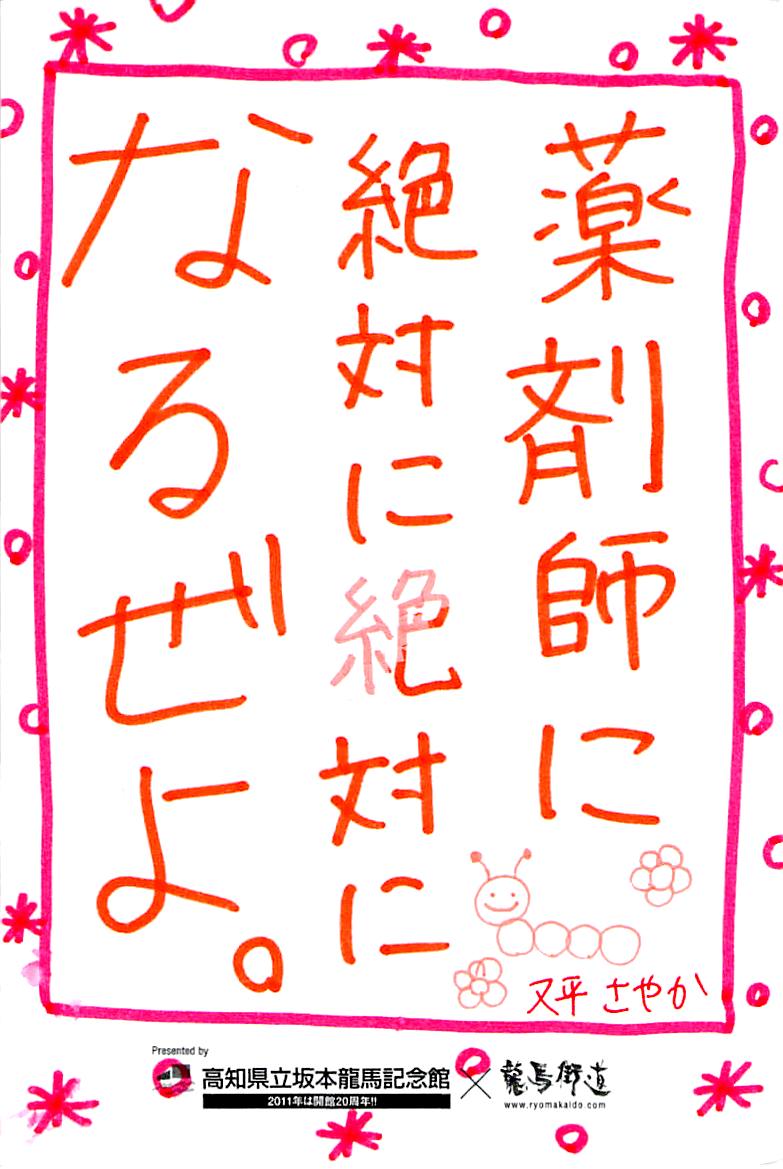 薬剤師に
絶対に絶対に
なるぜよ。
又平 さやか
Presented by
高知県立坂本龍馬記念館×龍馬街道
2011年は開館20周年!!
www.ryomakaido.com